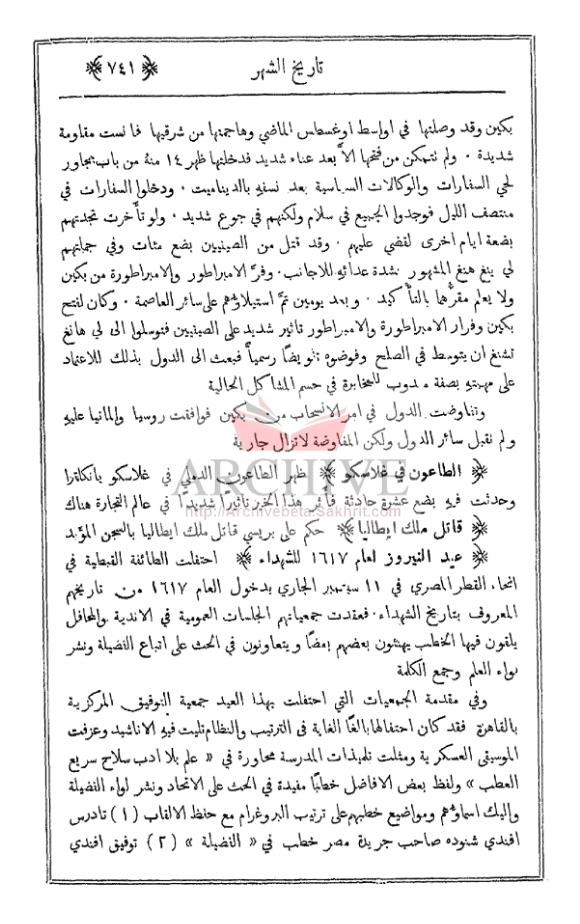 تاريخ الشهر
﴿ ٧٤١ ﴾
بكين وقد وصلتها في اواسط اوغسطس الماضي وهاجمتها من شرقيها فآنست مقاومة
شديدة ٠ ولم تتمكن من فتحها الاَّ بعد عناء شديد فدخلتها ظهر ١٤ منهُ من باب مجاور
لحي السفارات والوكالات السياسية بعد نسفهِ بالديناميت ٠ ودخلوا السفارات في
منتصف الليل فوجدوا الجميع في سلام ولكنهم في جوع شديد ٠ ولو تأخرت نجدتهم
بضعة ايام اخرى لقضي عليهم ٠ وقد قتل من الصينيين بضع مئات وفي جملتهم
لي ينغ هنغ المشهور بشدة عدائهِ للاجانب ٠ وفرَّ الامبراطور والامبراطورة من بكين
ولا يعلم مقرُّهما بالتأكيد ٠ وبعد يومين تمَّ استيلاؤهم على سائر العاصمة ٠ وكان لفتح
بكين وفرار الامبراطورة والامبراطور تاثير شديد على الصينيين فتوسلوا الى لي هانغ
تشنغ ان يتوسط في الصلح وفوضوهُ تفويضًا رسمياً فبعث الى الدول بذلك للاعتماد
على مهمتهِ بصفة مندوب للمخابرة في حسم المشاكل الحالية
وتفاوضت الدول في امر الانسحاب من بكين فوافقت روسيا والمانيا عليهِ
ولم تقبل سائر الدول ولكن المفاوضة لا تزال جارية
﴿ الطاعون في غلاسكو ﴾ ظهر الطاعون الدملي في غلاسكو بانكلترا
وحدثت فيهِ بضع عشرة حادثة فأثر هذا الخبر تاثيرًا شديدًا في عالم التجارة هناك
ARCHIVE
http://Archivebeta.Sakhrit.com
﴿ قاتل ملك ايطاليا ﴾ حكم على بريسي قاتل ملك ايطاليا بالسجن المؤبد
﴿ عيد النيروز لعام ١٦١٧ للشهداء ﴾ احتفلت الطائفة القبطية في
انحاء القطر المصري في ١١ سبتمبر الجاري بدخول العام ١٦١٧ من تاريخهم
المعروف بتاريخ الشهداء ٠ فعقدت جمعياتهم الجلسات العمومية في الاندية والمحافل
يلقون فيها الخطب يهنئون بعضهم بعضًا ويتعاونون في الحث على اتباع الفضيلة ونشر
لواء العلم وجمع الكلمة
وفي مقدمة الجمعيات التي احتفلت بهذا العيد جمعية التوفيق المركزية
بالقاهرة فقد كان احتفالها بالغًا الغاية في الترتيب والنظام تليت فيهِ الاناشيد وعزفت
الموسيقى العسكرية ومثلت تلميذات المدرسة محاورة في « علم بلا ادب سلاح سريع
العطب » ولفظ بعض الافاضل خطبًا مفيدة في الحث على الاتحاد ونشر لواء الفضيلة
واليك اسماؤهم ومواضيع خطبهم على ترتيب البروغرام مع حفظ الالقاب (١) تادرس
افندي شنوده صاحب جريدة مصر خطب في « الفضيلة » (٢) توفيق افندي